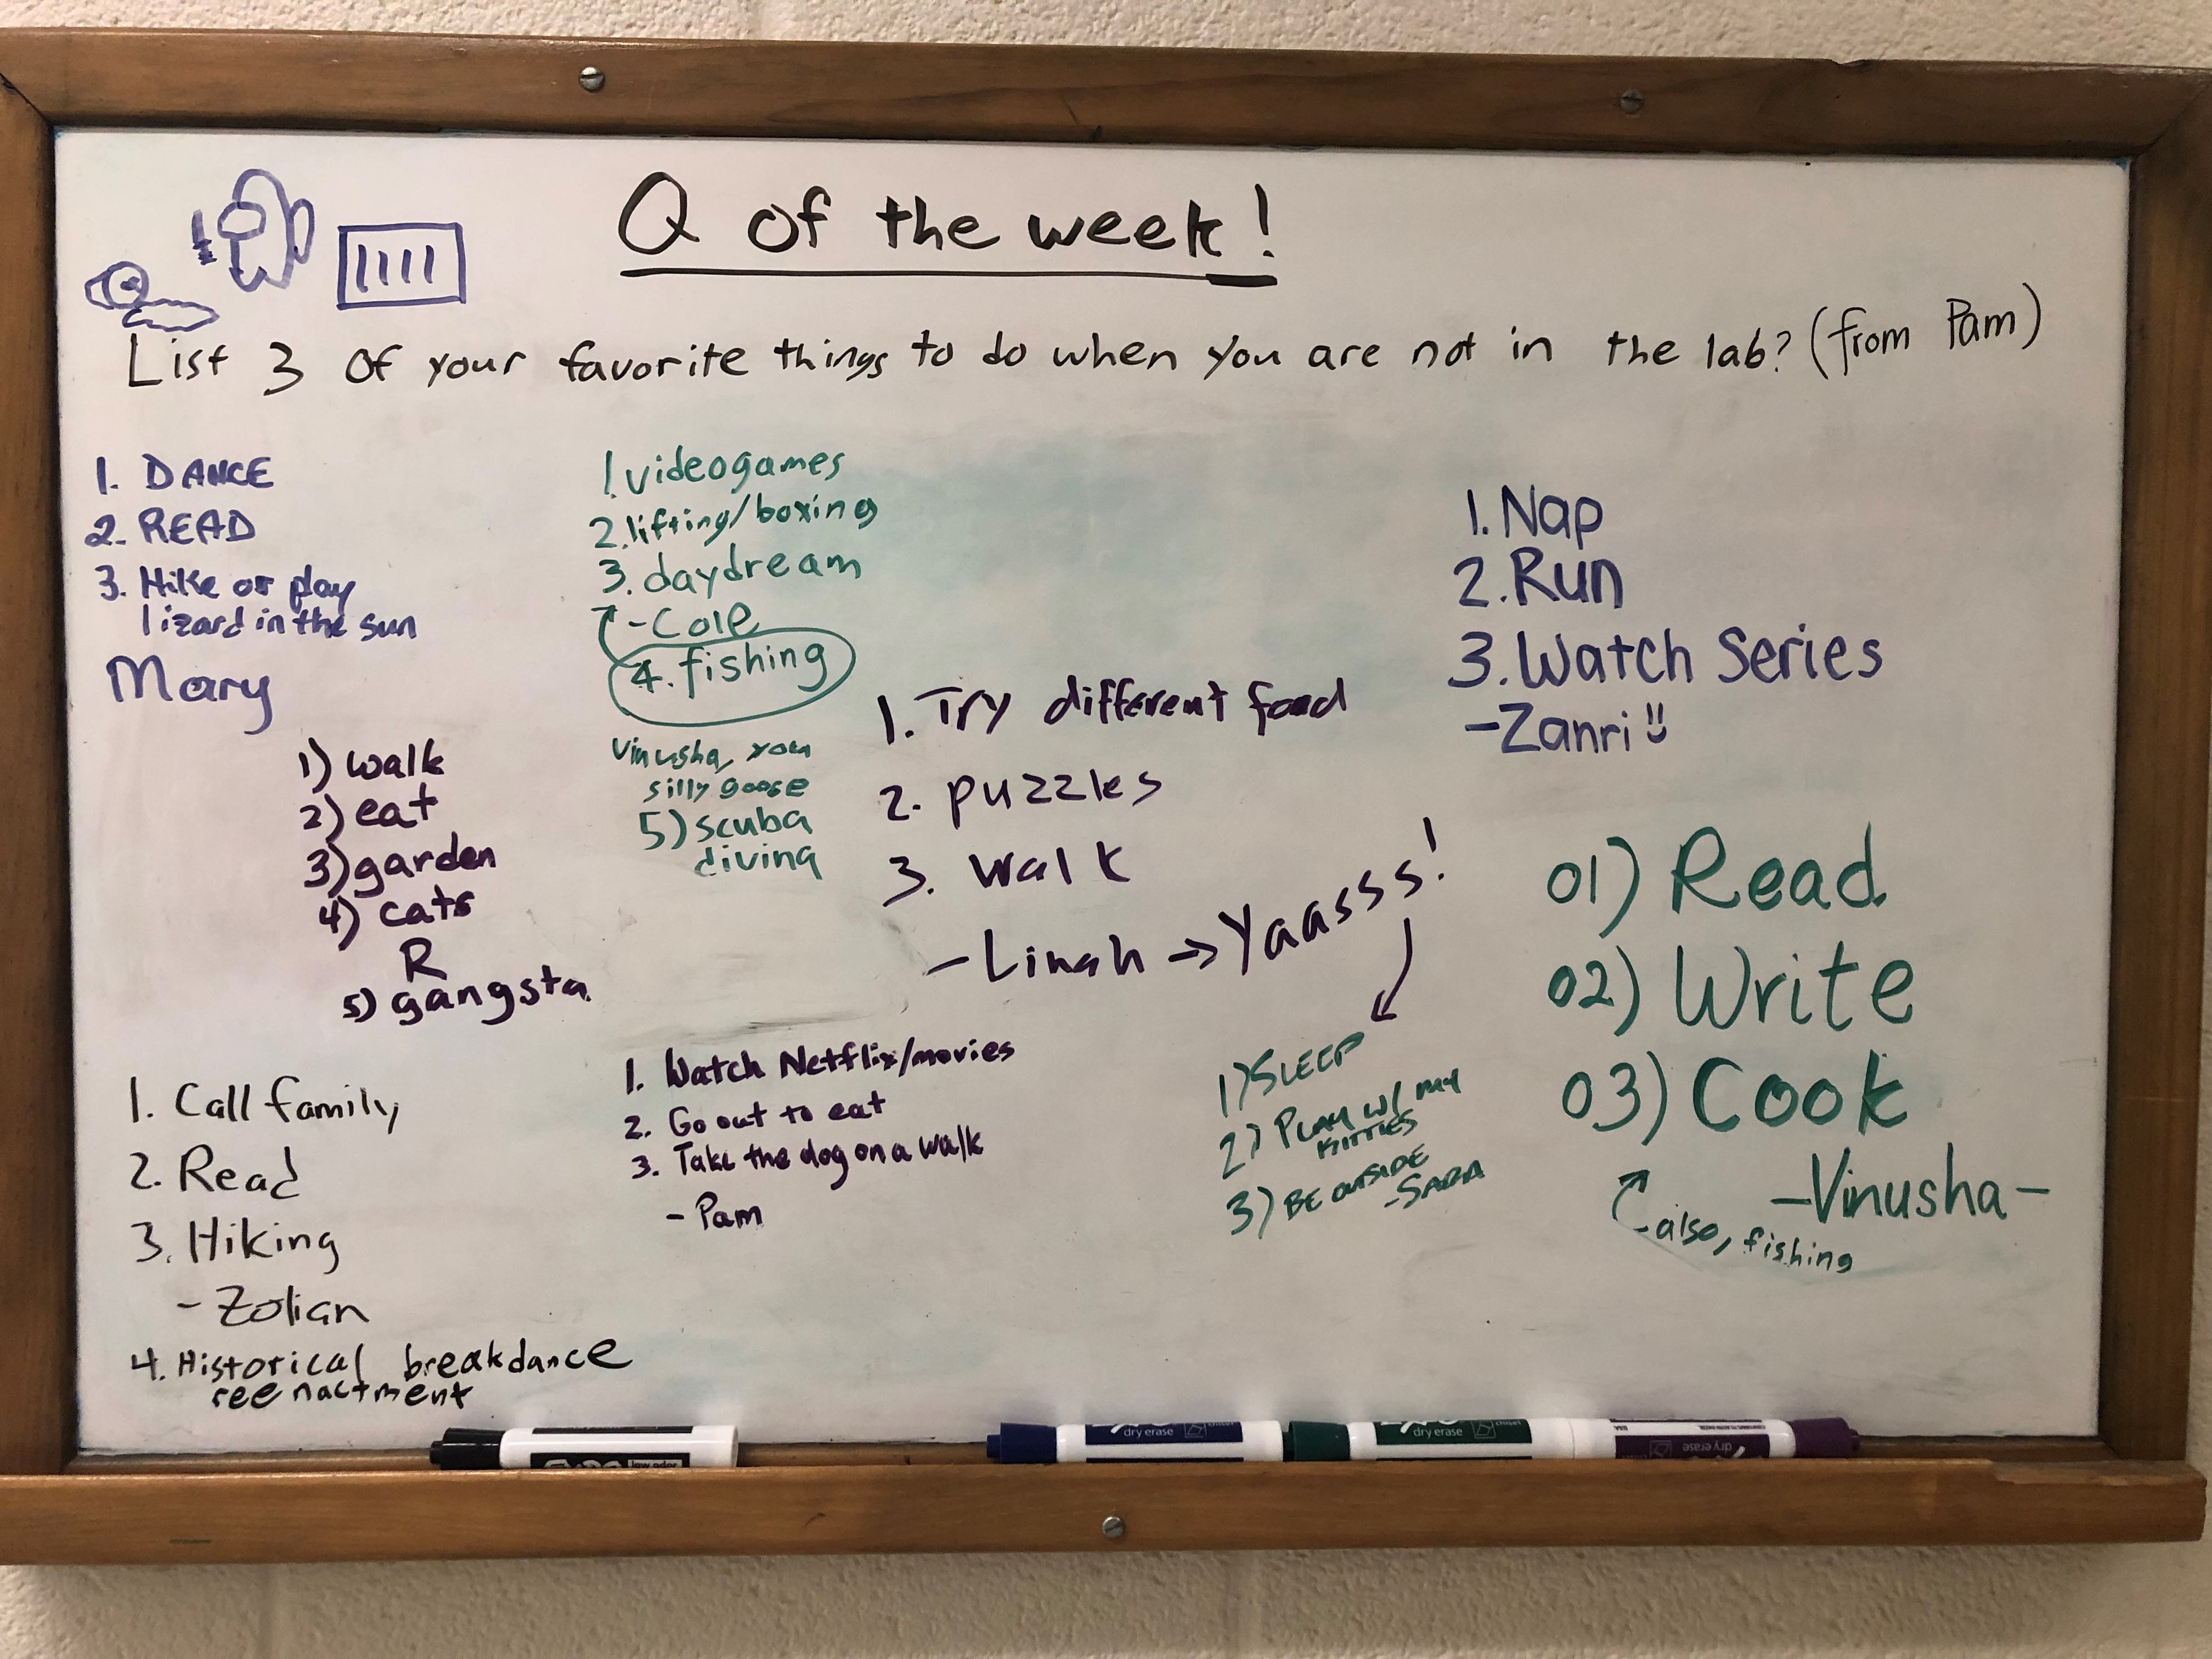 Q of the week!
List 3 of your favorite things to do when you are not in the lab? (from Pam)
1. DANCE
2. READ
3. Hike or play
lizard in the sun
Mary
1. videogames
2. lifting/boxing
3. daydream
- Cole
4. fishing
Vinusha, you
silly goose
5) scuba
diving
1. Nap
2. Run
3. Watch Series
- Zanri
1) walk
2) eat
3) garden
4) cats
R
5) gangsta
1. Try different food
2. puzzles
3. walk
- Linah → Yaasss!
01) Read
02) Write
03) Cook
- Vinusha -
- also, fishing
1. Call family
2. Read
3. Hiking
- Zolian
4. Historical breakdance
reenactment
1. Watch Netflix/movies
2. Go out to eat
3. Take the dog on a walk
- Pam
1) SLEEP
2) PLAY W/ MY
KITTIES
3) BE OUTSIDE
- SARA
low odor
dry erase
dry erase
dry erase